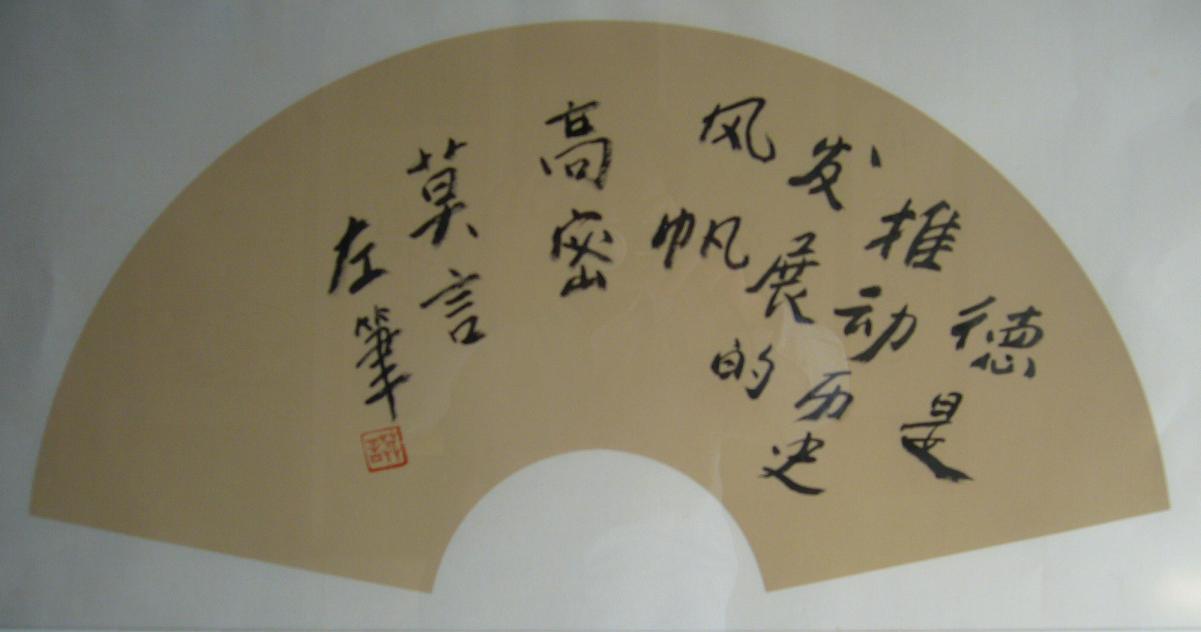 德是
推动历史
发展的
风帆
高密
莫言
左筆